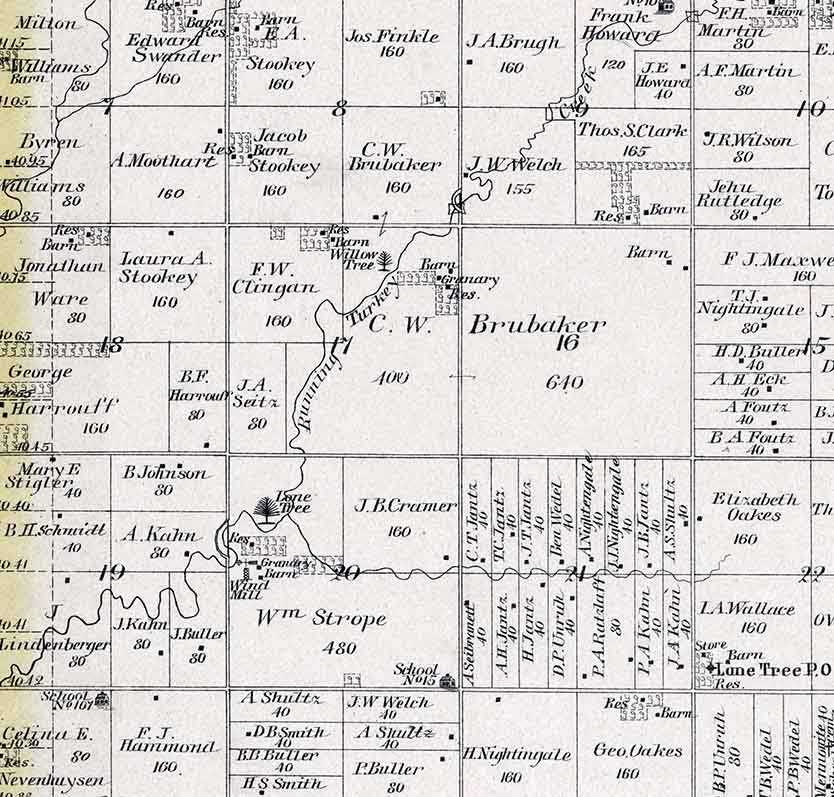 Milton
Williams
Barn
80
4105
Res.
Barn
Res.
Edward
Swander
160
Barn
E. A.
Stookey
160
Jos. Finkle
160
J. A. Brugh
160
Frank
Howard
120
J.E
Howard
40
F.H.
Martin
80
Barn
A.F. Martin
80
7
8
9
10
Creek
Byren
4095
Williams
80
4085
A. Moothart
160
Res
Jacob
Barn
Stookey
160
C. W.
Brubaker
160
J. W. Welch
155
Thos. S. Clark
165
Res.
Barn
J.R. Wilson
80
Jehu
Rutledge
80.
To
Res
Barn
Jonathan
Ware
80
Laura A.
Stookey
160
F. W.
Clingan
160
Res
Barn
Willow
Tree
Barn
Granary
Res.
Running Turkey
C. W. Brubaker
400
640
Barn
F J. Maxwe
160
T.J.
Nightingale
80
H.D. Buller
40
A. H. Eck
40
A Foutz
40
B A Foutz
40
18
17
16
15
4065
George
Harrouff
160
4045
B.F.
Harrouff
80
J. A.
Seitz
80
Mary E
Stigler
40
4040
B. H. Schmidt
40
4041
B Johnson
80
A. Kahn
80
Lone
Tree
Res
Granary
Barn
Wind
Mill
J. B. Cramer
160
C. T. Jantz
40
T.C. Jantz
40
J. T. Jantz
40
Ben Wedel
40
A. Nightengale
40
H. Nightengale
40
J. B. Jantz
40
A.S. Shultz
40
Elizabeth
Oakes
160
Th
19
20
21
22
J
Lindenberger
80
4041
4042
J. Kahn
80
J. Buller
80
Wm Strope
480
School
No 15
A Seibranelt
40
A. H. Jantz
40
H. Jantz
40
D. P. Unruh
40
P. A Ratzlaff
80
P. A Kahn
40
J. A Kahn
40
I. A. Wallace
160
Store
Barn
Lone Tree P.O
Res.
School
No 101
Celina E.
4030
80
Res.
Nevenhuysen
F. J.
Hammond
160
A Shultz
40
D B Smith
40
B.B Buller
40
H S Smith
J. W Welch
40
A Shultz
40
P. Buller
80
H. Nightingale
160
Res
Barn
Geo. Oakes
160
B. P. Unruh
80
B. Wedel
40
J. P B Wedel
40
Mennonite 40